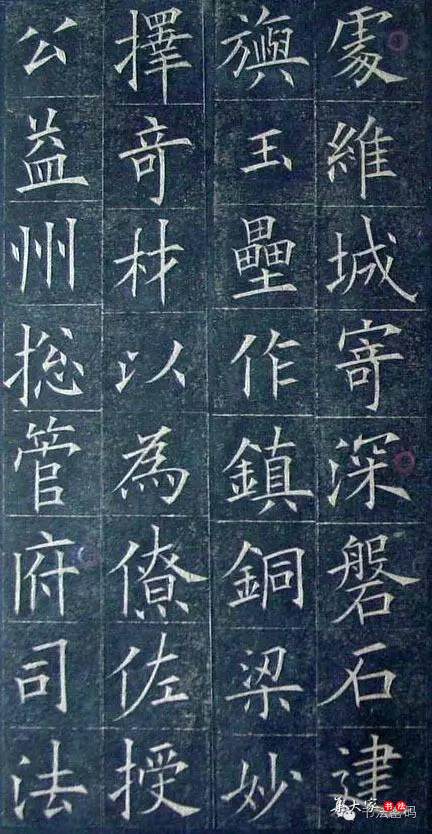 處維城寄深磐石建
旟玉壘作鎮銅梁妙
擇奇材以為僚佐授
公益州揔管府司法
集大家 书法
书法密码